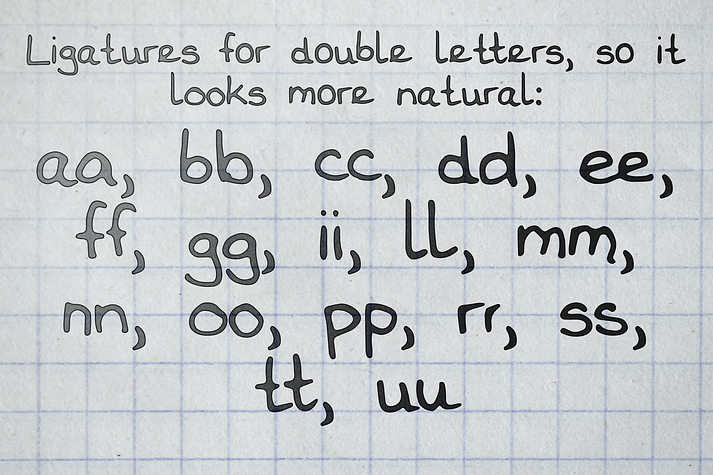 Ligatures for double letters, so it
looks more natural:
aa, bb, cc, dd, ee,
ff, gg, ii, ll, mm,
nn, oo, pp, rr, ss,
tt, uu